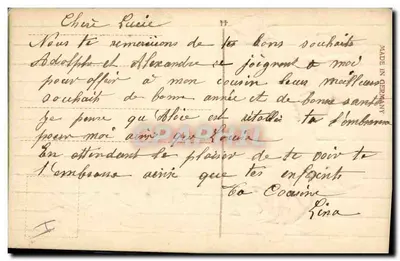 Chere Lucie
Nous te remercions de tes bons souhaits
Adolphe et Alexandre se joignent a moi
pour offrir à mon cousin leurs meilleurs
souhait de bonne année et de bonne santé
Je pense qu'Alice est rétablie tu l'embrasse
pour moi ainsi que Louis
En attendant le plaisir de te voir je
t'embrasse ainsi que tes enfants
Ta Cousine
Lina
MADE IN GERMANY